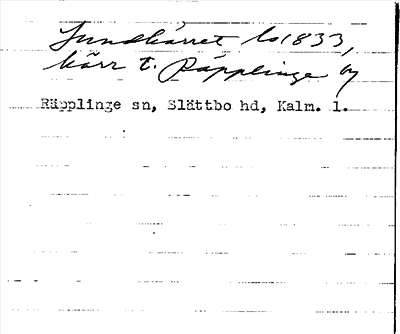 Sundkärret ls 1833,
kärr t. Räpplinge by
Räpplinge sn, Slättbo hd, Kalm. l.